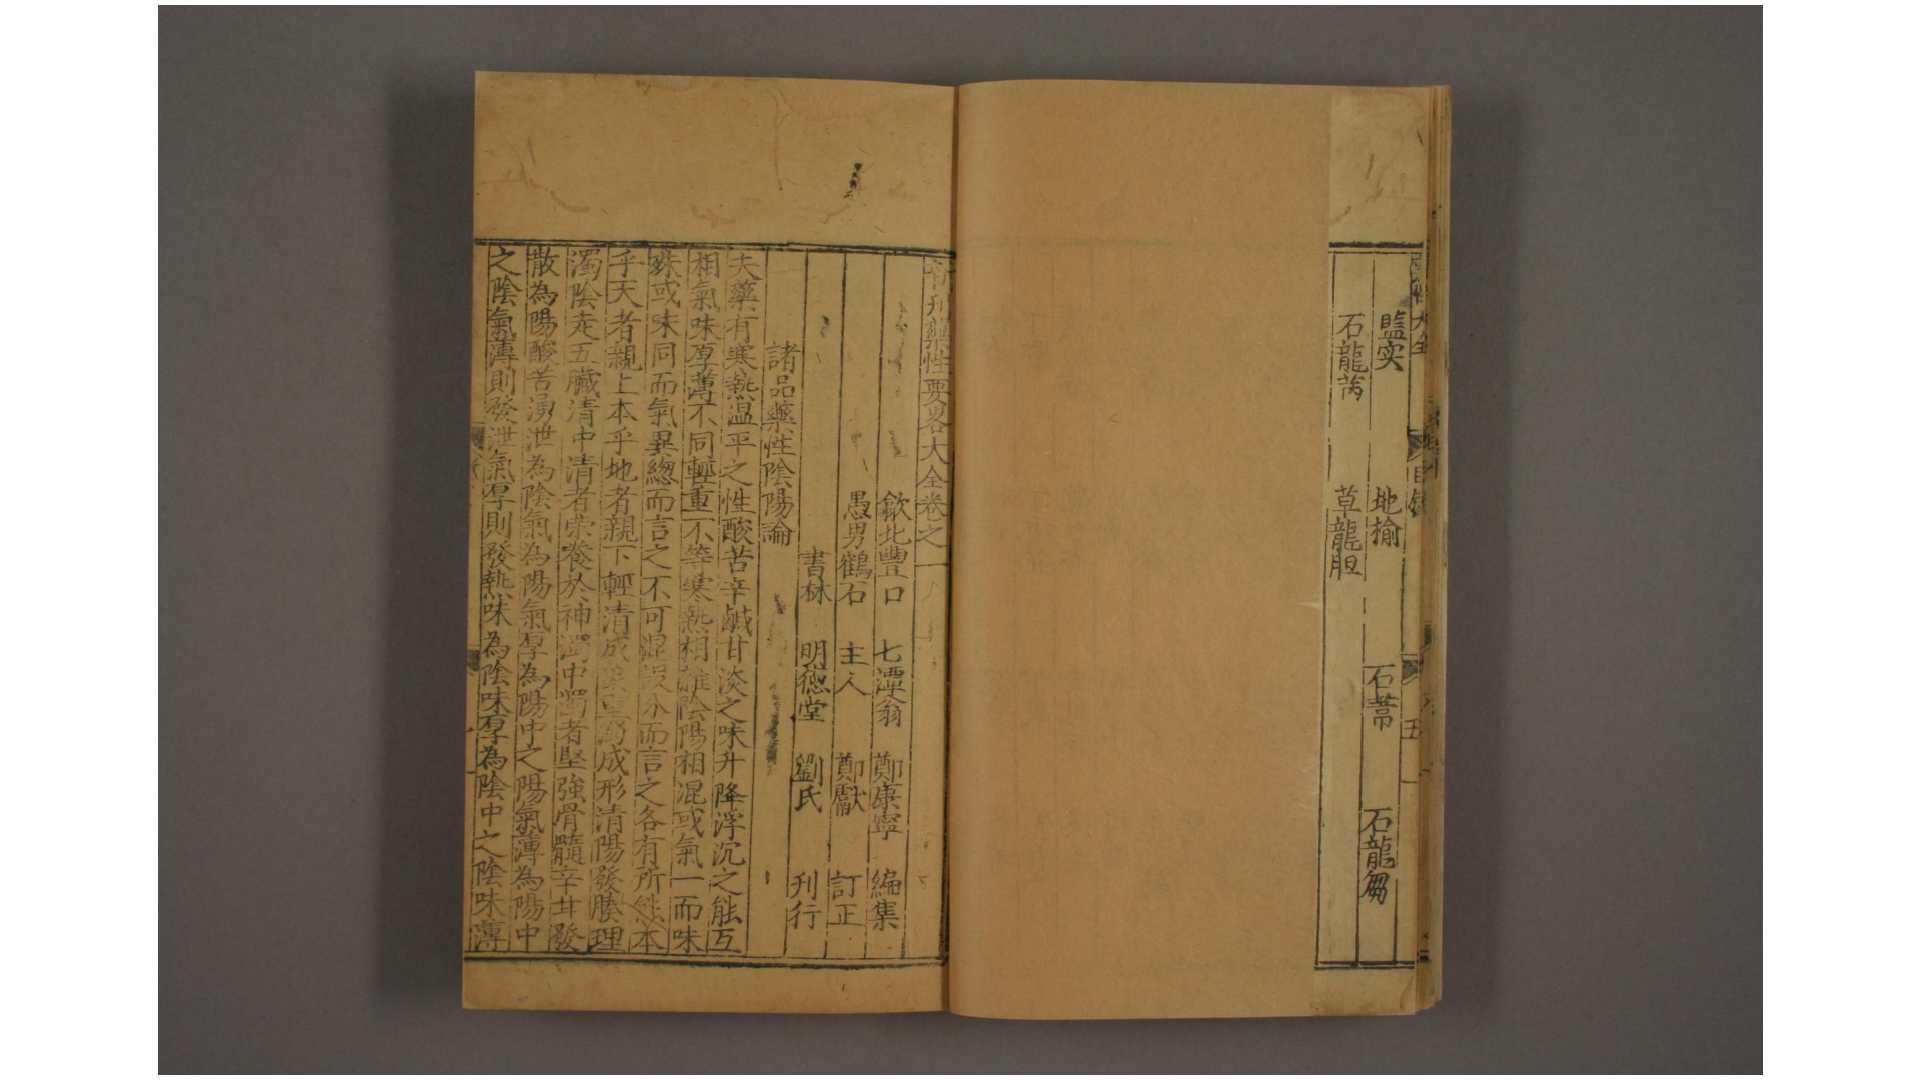 藍实　地榆　石䔍　石龍芻
石龍芮　草龍胆
新刊藥性要畧大全卷之一
歙北豐口　七潭翁　鄭康寧　編集
愚男鶴石　主人　鄭獻　訂正
書林　明德堂　劉氏　刊行
諸品藥性陰陽論
夫藥有寒熱温平之性酸苦辛鹹甘淡之味升降浮沉之能互
相氣味厚薄不同輕重不等寒熱相雜陰陽相混或氣一而味
殊或味同而氣異緫而言之不可混誤分而言之各有所能本
乎天者親上本乎地者親下輕清成象重濁成形清陽發腠理
濁陰走五臟清中清者榮養於神濁中濁者堅強骨髓辛甘發
散為陽酸苦湧泄為陰氣為陽氣厚為陽中之陽氣薄為陽中
之陰氣薄則發泄氣厚則發熱味為陰味厚為陰中之陰味薄